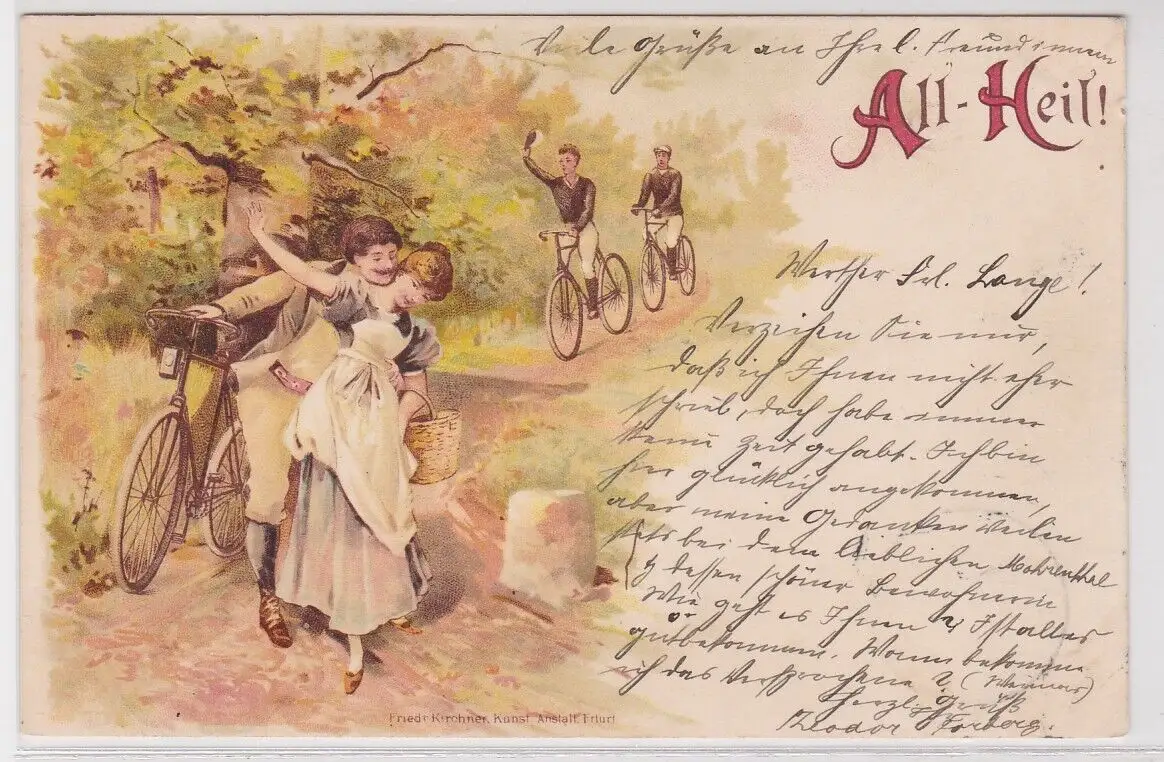 Viele Grüße an Ihre l. Freundinnen
All-Heil!
Werther Frl. Lange!
Verzeihen Sie nur,
daß ich Ihnen nicht eher
schrieb, doch habe immer
keine Zeit gehabt. Ich bin
hier glücklich angekommen,
aber meine Gedanken weilen
stets bei dem lieblichen Mohrenthal
u dessen schöner Bewohnerin
Wie geht es Ihnen? Ist alles
gut bekommen. Wann bekomme
ich das Versprochene? (Weimar)
Herzl. Gruß
Teodor Forberg.
Friedr Kirchner, Kunst Anstalt, Erfurt